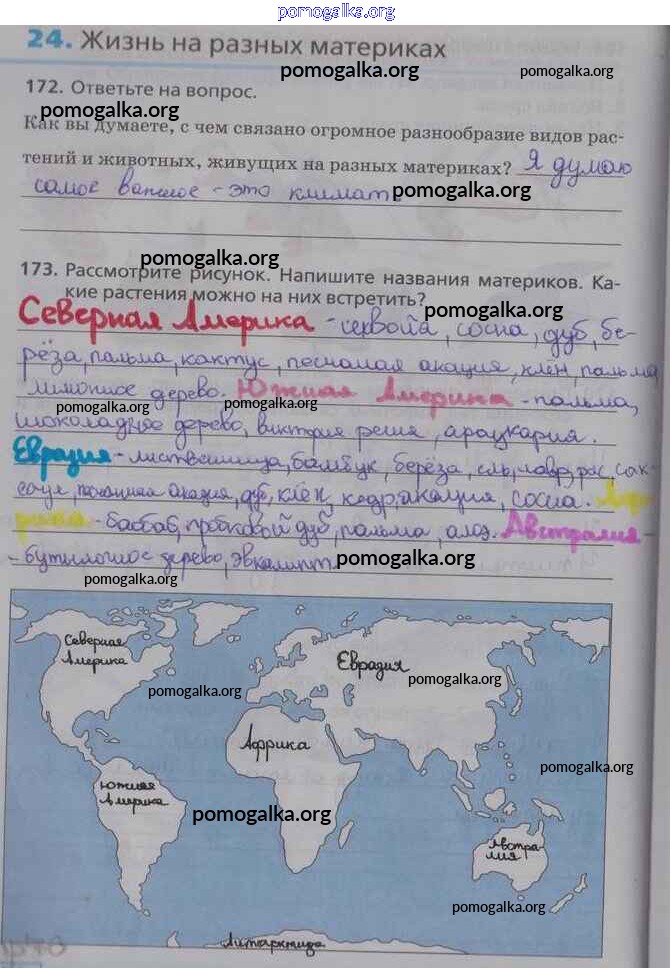 pomogalka.org
24. Жизнь на разных материках
pomogalka.org
pomogalka.org
172. Ответьте на вопрос.
pomogalka.org
Как вы думаете, с чем связано огромное разнообразие видов рас-
тений и животных, живущих на разных материках? Я думаю
самое важное - это климат.
pomogalka.org
pomogalka.org
173. Рассмотрите рисунок. Напишите названия материков. Ка-
кие растения можно на них встретить?
pomogalka.org
Северная Америка - секвойа, сосна, дуб, бе-
рёза, пальма, кактус, песчаная акация, клён, пальма,
лимонное дерево. Южная Америка - пальма,
pomogalka.org
pomogalka.org
шоколадное дерево, виктория регия, араукария.
Евразия - лиственница, бамбук, берёза, ель, лавр, рас, сак-
саул, песчаная акация, дуб, клён, кедр, акация, сосна. Аф-
рика - баобаб, пробковый дуб, пальма, алоэ. Австралия -
pomogalka.org
- бутылочное дерево, эвкалипт.
pomogalka.org
pomogalka.org
Северная
Америка
Евразия
pomogalka.org
pomogalka.org
Африка
pomogalka.org
Южная
Америка
pomogalka.org
Австра-
лия
pomogalka.org
Антарктида